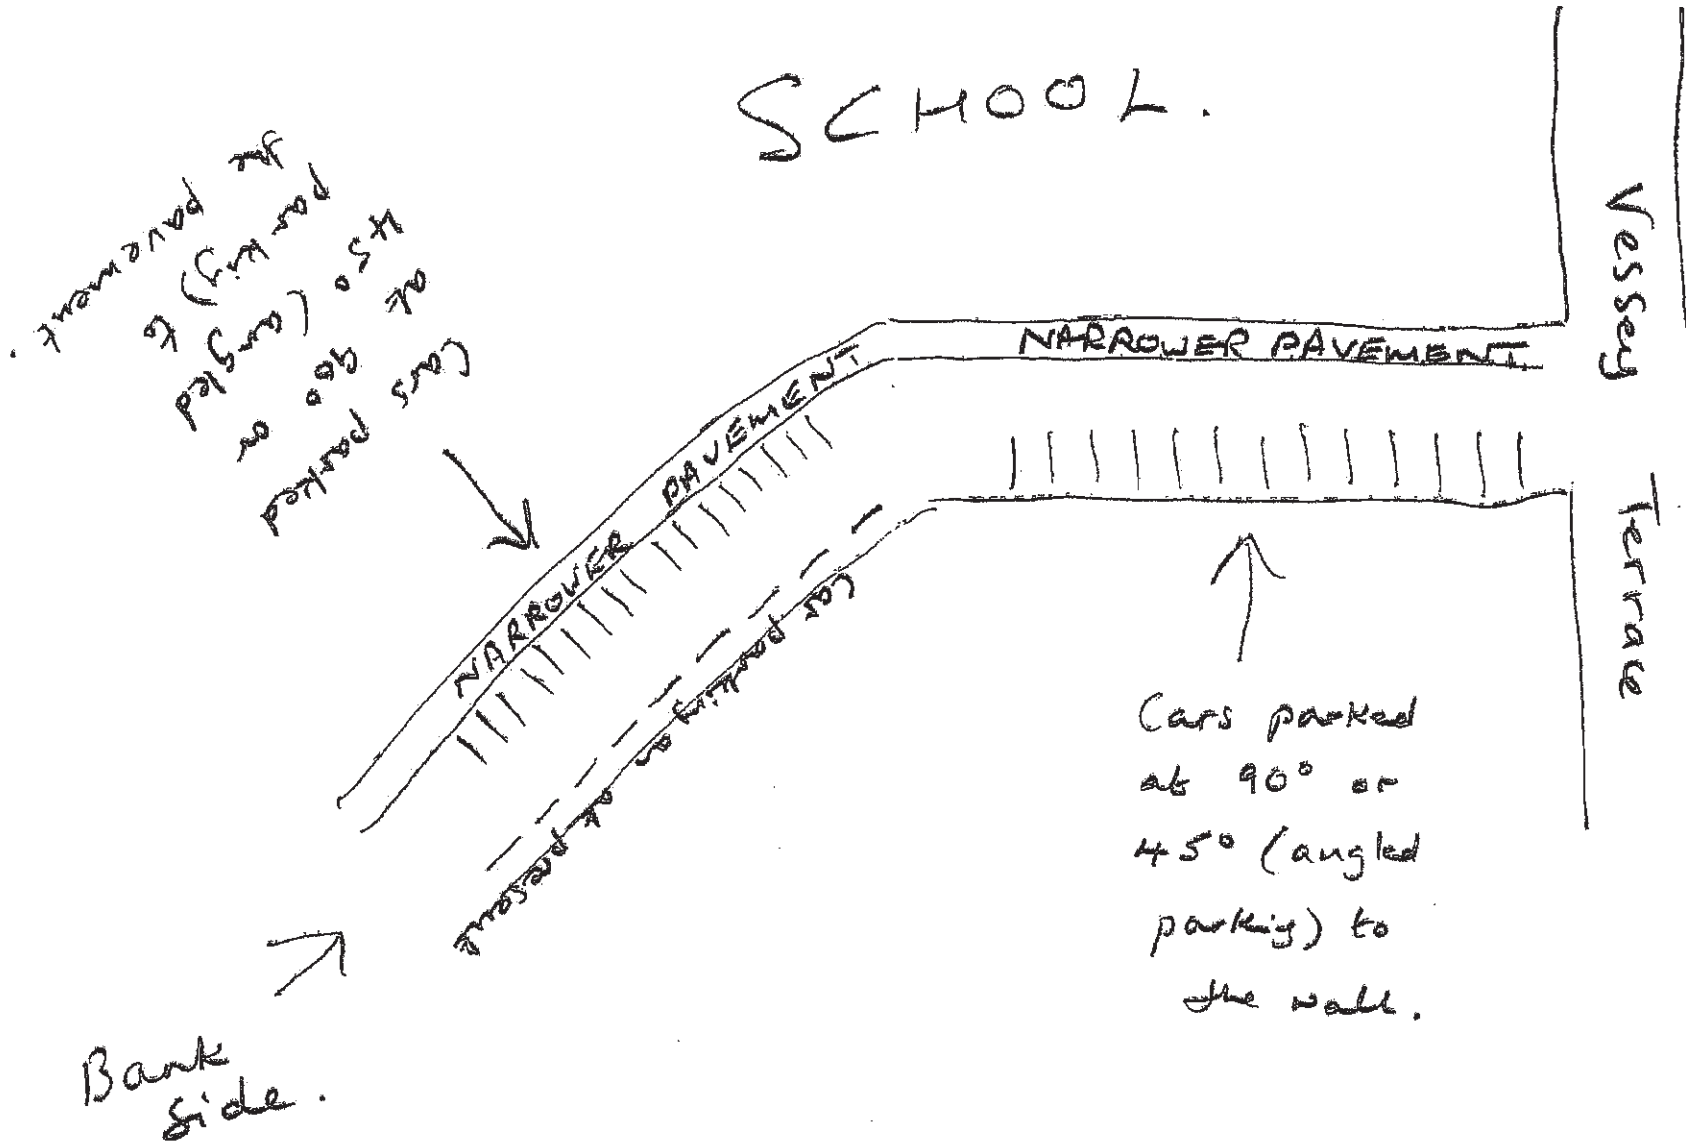 SCHOOL.
Cars parked
at 90° or
45° (angled
parking) to
the pavement.
NARROWER PAVEMENT
NARROWER PAVEMENT
Vessey Terrace
Car parking as at present
Cars parked
at 90° or
45° (angled
parking) to
the wall.
Bank
side.